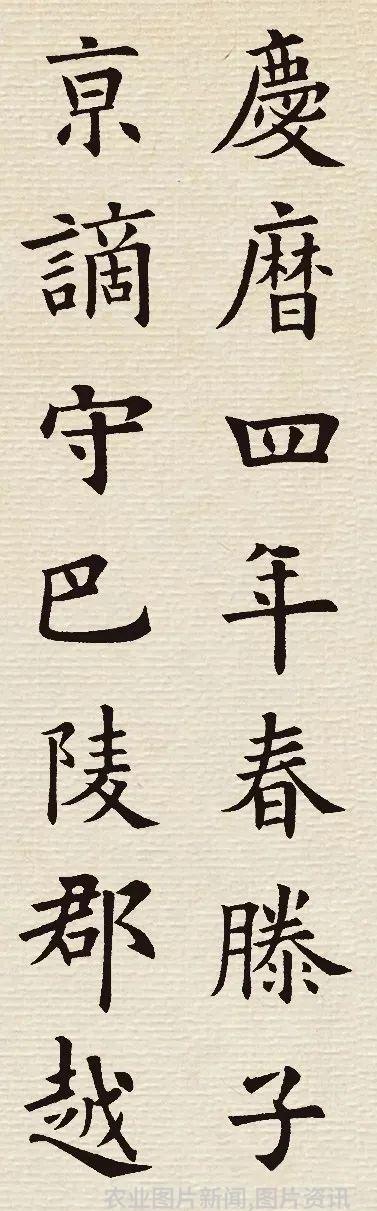 慶曆四年春滕子
京謫守巴陵郡越
农业图片新闻,图片资讯